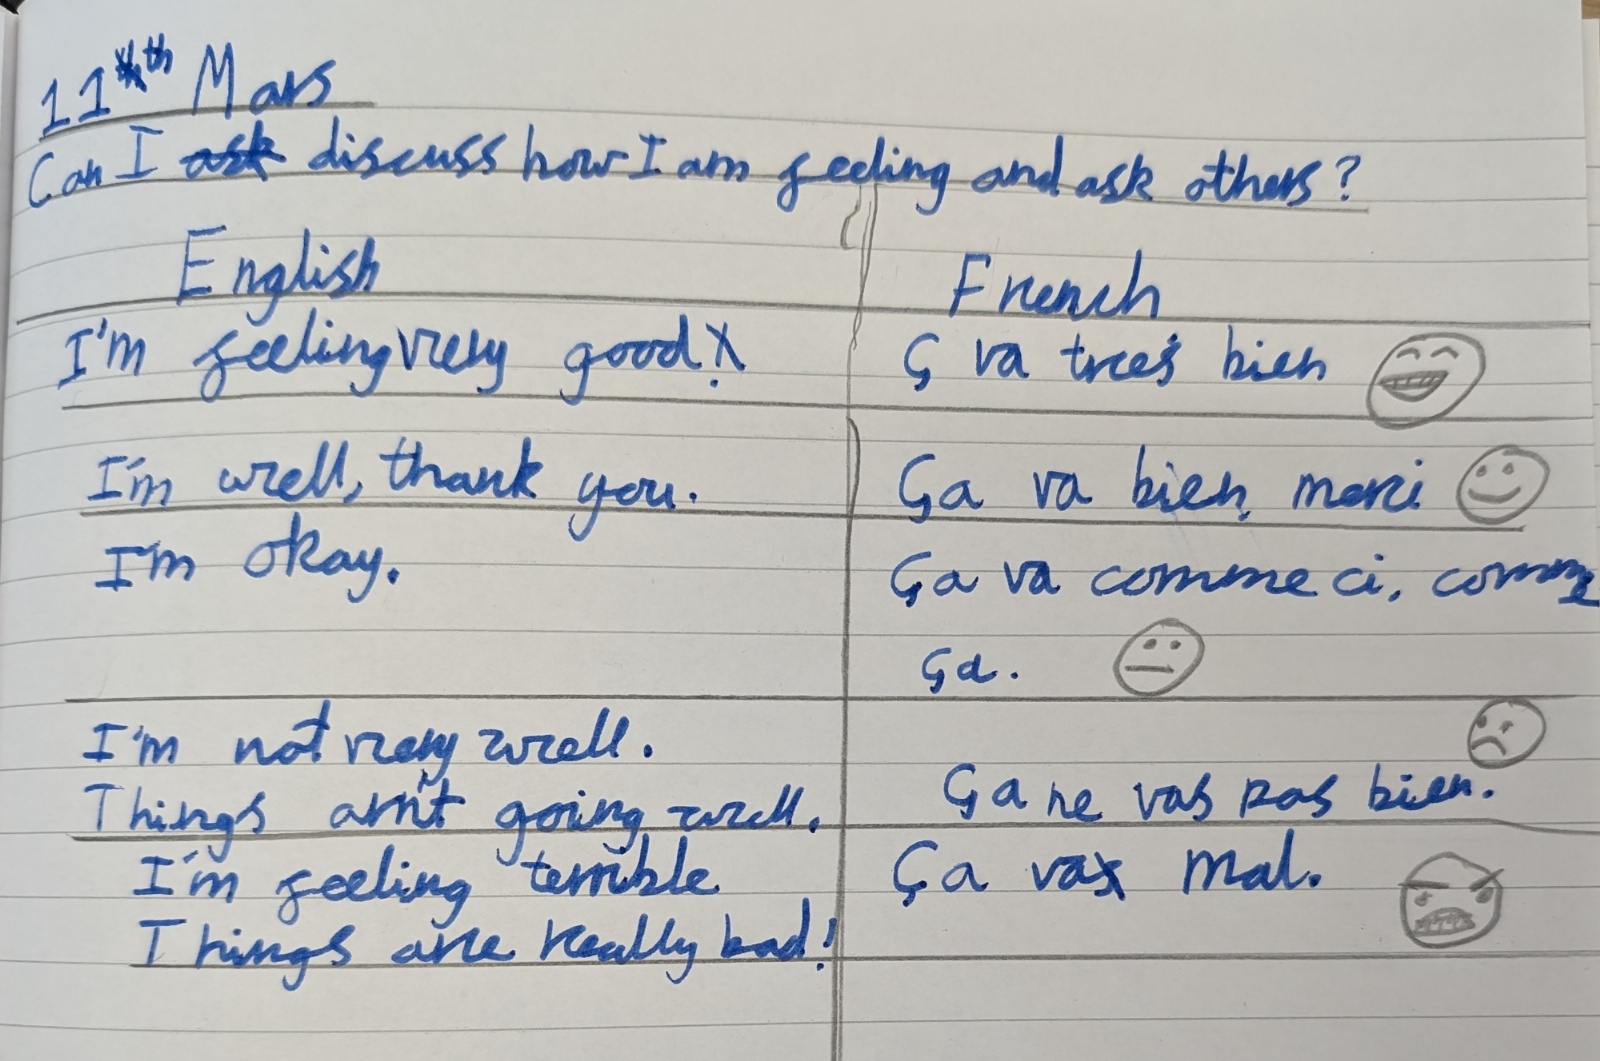 11th Mars
Can I discuss how I am feeling and ask others?
English French
I'm feeling very good! Ç va treś bien
I'm well, thank you. Ça va bien, merci
I'm okay. Ça va comme ci, comme
ça.
I'm not very well.
Things arn't going well. Ça ne vas pas bien.
I'm feeling terrible Ça va mal.
Things are really bad!